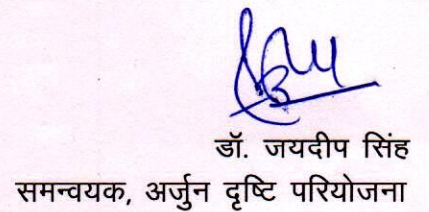 डॉ. जयदीप सिंह
समन्वयक, अर्जुन दृष्टि परियोजना